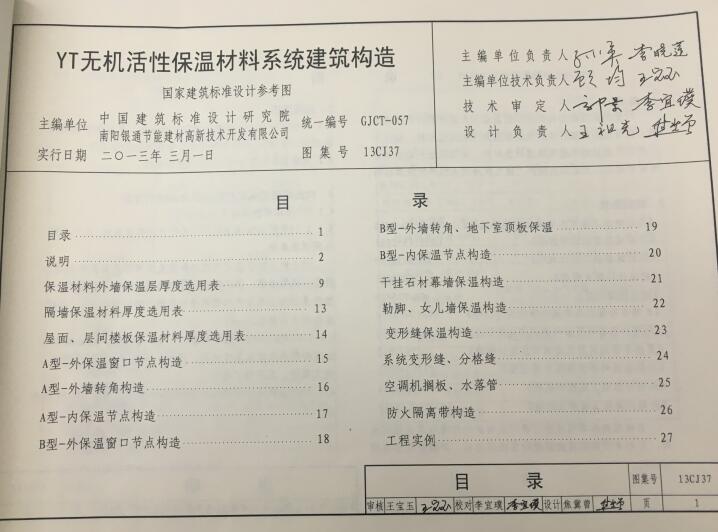 YT无机活性保温材料系统建筑构造
国家建筑标准设计参考图
主编单位 中国建筑标准设计研究院
南阳银通节能建材高新技术开发有限公司
统一编号 GJCT-057
实行日期 二〇一三年三月一日
图集号 13CJ37
主编单位负责人
主编单位技术负责人
技术审定人
设计负责人
目 录
目录 1
说明 2
保温材料外墙保温层厚度选用表 9
隔墙保温材料厚度选用表 13
屋面、层间楼板保温材料厚度选用表 14
A型-外保温窗口节点构造 15
A型-外墙转角构造 16
A型-内保温节点构造 17
B型-外保温窗口节点构造 18
B型-外墙转角、地下室顶板保温 19
B型-内保温节点构造 20
干挂石材幕墙保温构造 21
勒脚、女儿墙保温构造 22
变形缝保温构造 23
系统变形缝、分格缝 24
空调机搁板、水落管 25
防火隔离带构造 26
工程实例 27
目 录 图集号 13CJ37
审核 王宝玉 校对 李宜璞 设计 焦冀曾 页 1